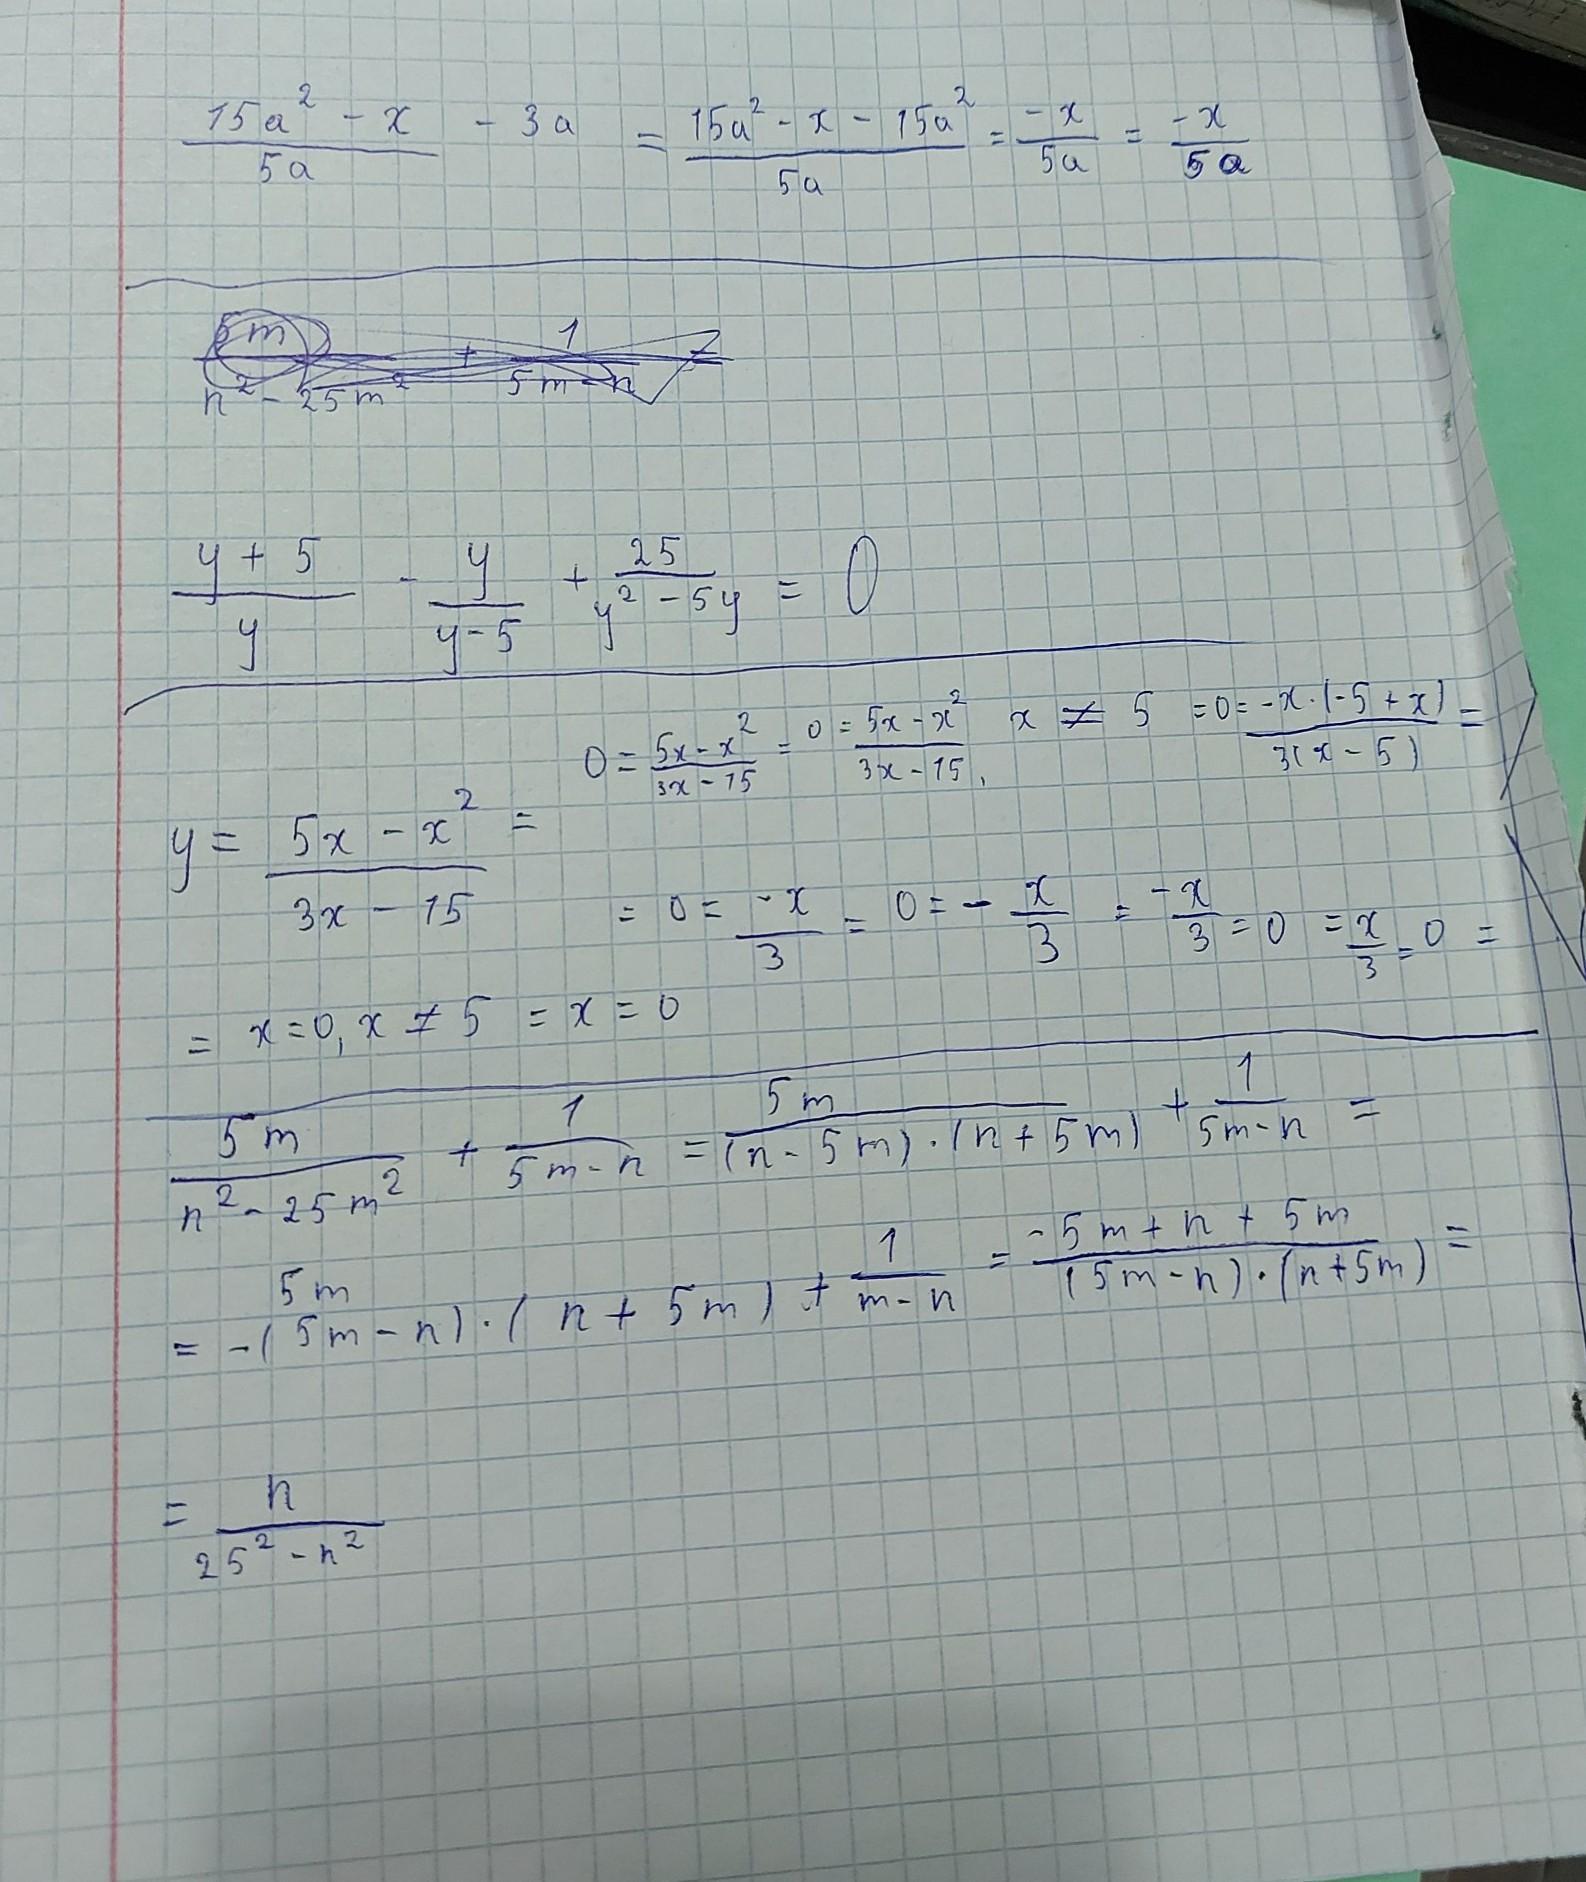 (15a² - x)/(5a) - 3a = (15a² - x - 15a²)/(5a) = (-x)/(5a) = (-x)/(5a)
(5m)/(n² - 25m²) + 1/(5m - n) =
(y + 5)/y - y/(y-5) + 25/(y² - 5y) = 0
0 = (5x - x²)/(3x - 15) = 0 = (5x - x²)/(3x - 15), x ≠ 5 = 0 = (-x · (-5 + x))/(3(x - 5)) =
y = (5x - x²)/(3x - 15) =
= 0 = (-x)/3 = 0 = - x/3 = (-x)/3 = 0 = x/3 = 0 =
= x = 0, x ≠ 5 = x = 0
(5m)/(n² - 25m²) + 1/(5m - n) = (5m)/((n - 5m) · (n + 5m)) + 1/(5m - n) =
= (5m)/(-(5m - n) · (n + 5m)) + 1/(m - n) = (-5m + n + 5m)/((5m - n) · (n + 5m)) =
= n/(25² - n²)